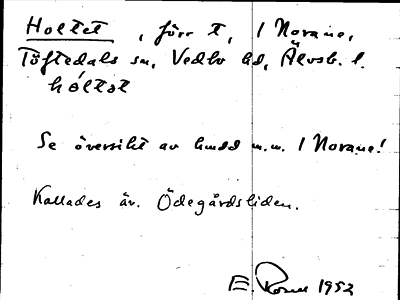 Holtet, förr t, 1 Norane,
Töftedals sn, Vedbo hd, Älvsb. l.
hóltət
Se översikt av hmdd m.m. 1 Norane!
Kallades äv. Ödegårdsliden.
E. 1952